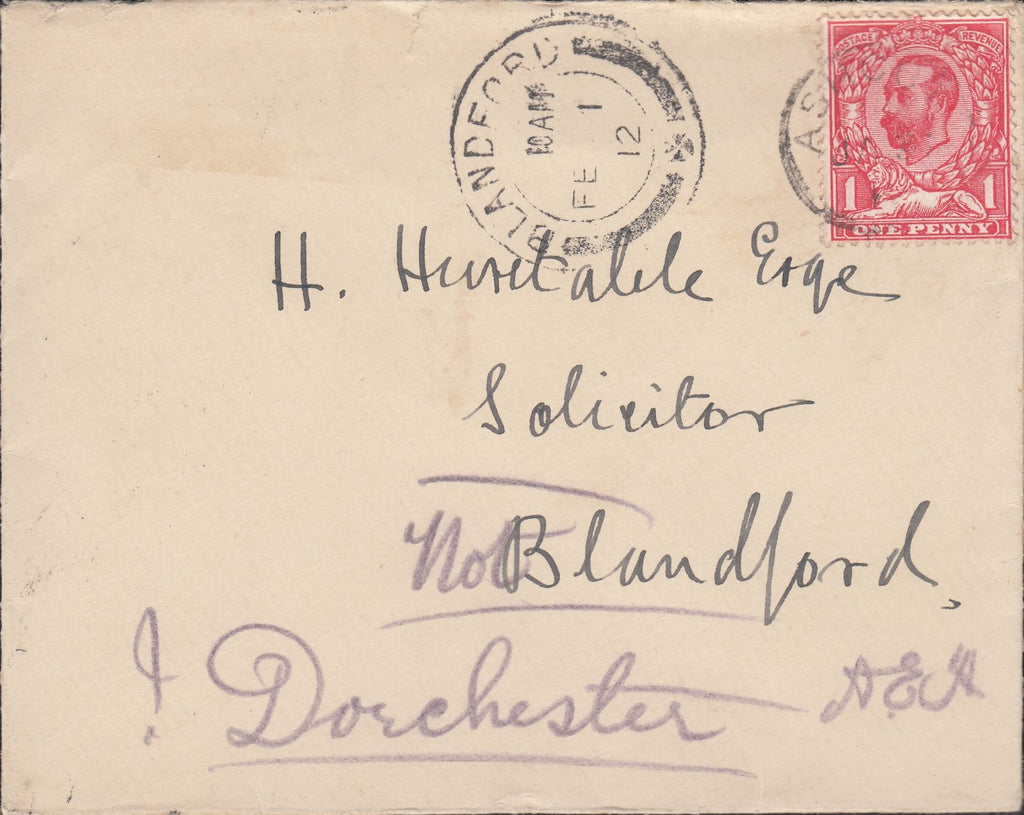 BLANDFORD
10 AM
FE 1
12
POSTAGE REVENUE
1 1
ONE PENNY
H. Esqe
Solicitor
Not Blandford,
? Dorchester A.E.H